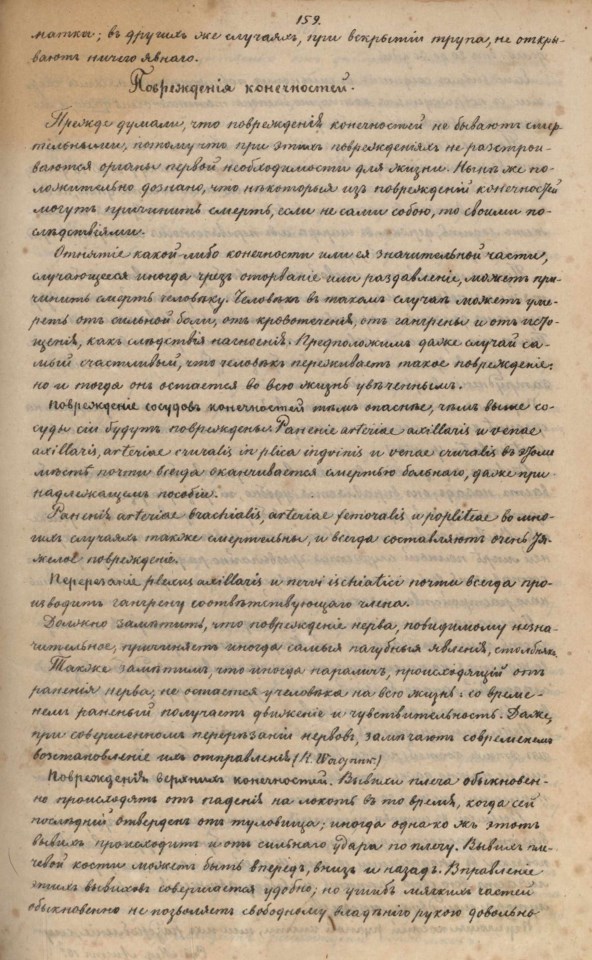 159.
матки; въ другихъ же случаяхъ, при вскрытіи трупа, не откры-
ваютъ ничего явнаго.
Поврежденія конечностей.
Прежде думали, что поврежденія конечностей не бываютъ смер
тельными, потому что при этихъ поврежденіяхъ не разстрои-
ваются органы первой необходимости для жизни. Нынѣ же по-
ложительно дознано, что нѣкоторыя изъ поврежденій конечностей
могутъ причинить смерть, если не сами собою, то своими по-
слѣдствіями.
Отнятіе какой-либо конечности или ея значительной части,
случающееся иногда чрезъ оторваніе или раздавленіе, можетъ при-
чинить смерть человѣку. Человѣкъ въ такомъ случаѣ можетъ уме-
реть отъ сильной боли, отъ кровотеченія, отъ гангрены и отъ исто-
щенія, какъ слѣдствія нагноенія. Предположимъ даже случай са-
мый счастливый, что человѣкъ переживаетъ такое поврежденіе;
но и тогда онъ остается во всю жизнь увѣченнымъ.
Поврежденіе сосудовъ конечностей тѣмъ опаснѣе, чѣмъ выше со-
суды сіи будутъ повреждены. Раненіе arteriae axillaris и venae
axillaris, arteriae cruralis in plica inguinis и venae cruralis въ этомъ
мѣстѣ почти всегда оканчивается смертью больнаго, даже при
надлежащемъ пособіи.
Раненія arteriae brachialis, arteriae femoralis и popliteae во мно-
гихъ случаяхъ также смертельны, и всегда составляютъ очень тя-
желое поврежденіе.
Перерѣзаніе plexus axillaris и nervi ischiatici почти всегда про-
изводитъ гангрену соотвѣтствующаго члена.
Должно замѣтить, что поврежденіе нерва, повидимому незна-
чительное, причиняетъ иногда самыя пагубныя явленія, столбнякъ.
Также замѣтимъ, что иногда параличъ, происходящій отъ
раненія нерва, не остается у человѣка на всю жизнь: со време-
немъ раненый получаетъ движеніе и чувствительность. Даже,
при совершенномъ перерѣзаніи нервовъ, замѣчаютъ современемъ
возстановленіе ихъ отправленія
Поврежденія верхнихъ конечностей. Вывихи плеча обыкновен-
но происходятъ отъ паденія на локоть въ то время, когда сей
послѣдній отведенъ отъ туловища; иногда однако жъ этотъ
вывихъ происходитъ и отъ сильнаго удара по плечу. Вывихъ пле-
чевой кости можетъ быть впередъ, внизъ и назадъ. Вправленіе
этихъ вывиховъ совершается удобно; но ушибъ мягкихъ частей
обыкновенно не позволяетъ свободному владѣнію рукою довольно